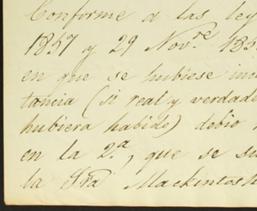 Conforme a las ley
1857 y 29 Nov.re 18
en que se hubiese in
tancia (si real y verdad
hubiera habido) debio
en la 2.a, que se su
la Sra Mackintosh